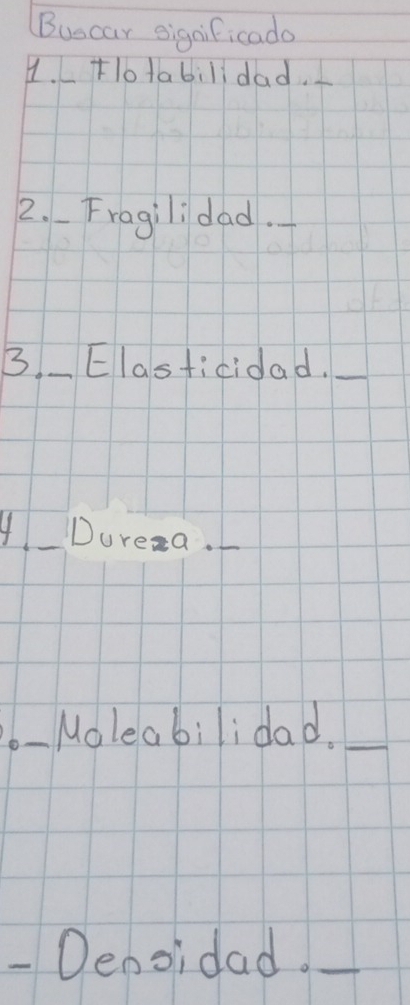 Buscar significado
1.- Flotabilidad.-
2.- Fragilidad.-
3.- Elasticidad.-
4.- Dureza.-
.- Maleabilidad.-
- Densidad.-